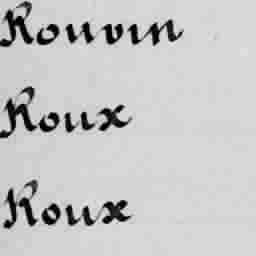 Rouvin
Roux
Roux